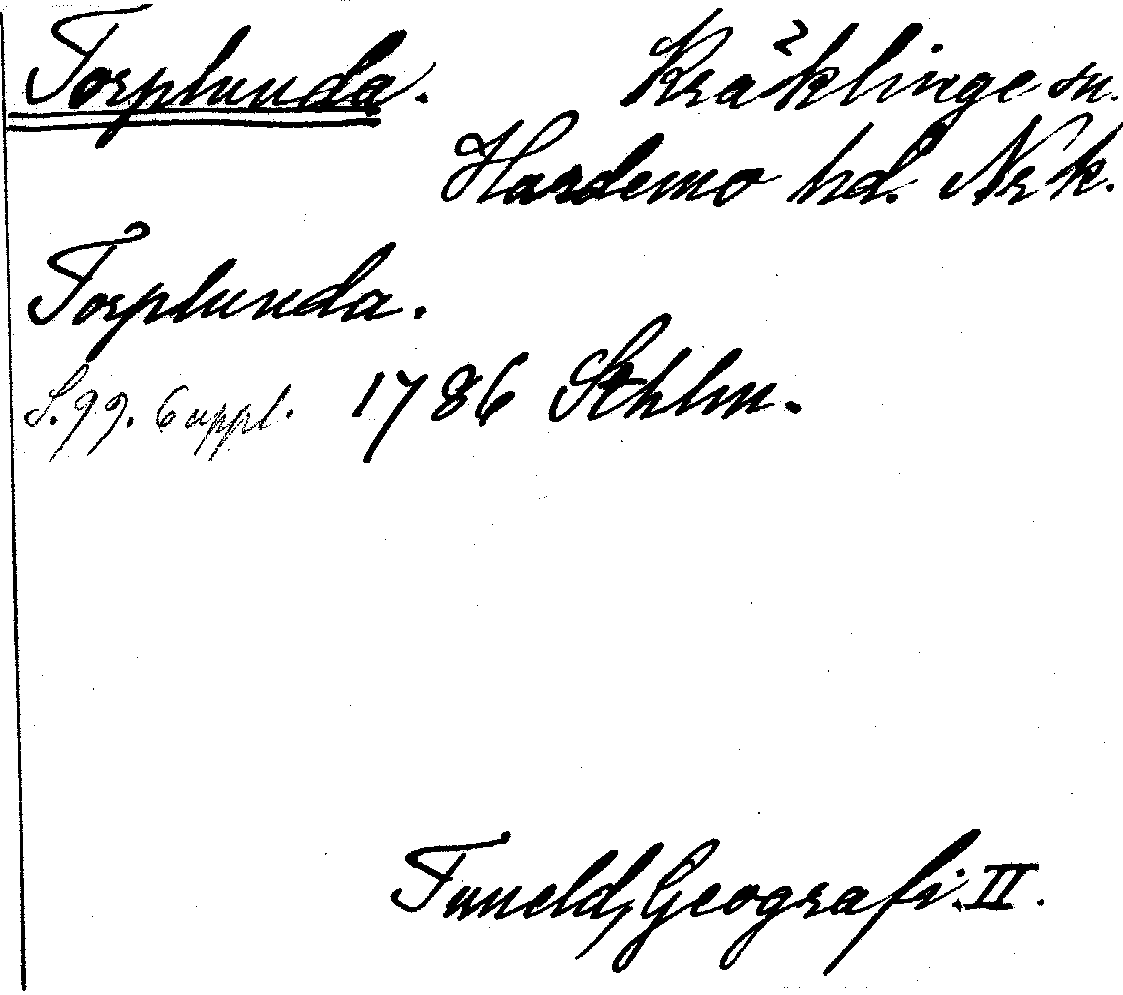 Torplunda. Kräklinge sn.
Hardemo hd. Nrk.
Torplunda.
S. 99. Suppl. 1786 Sthlm.
Tuneld, Geografi. II.